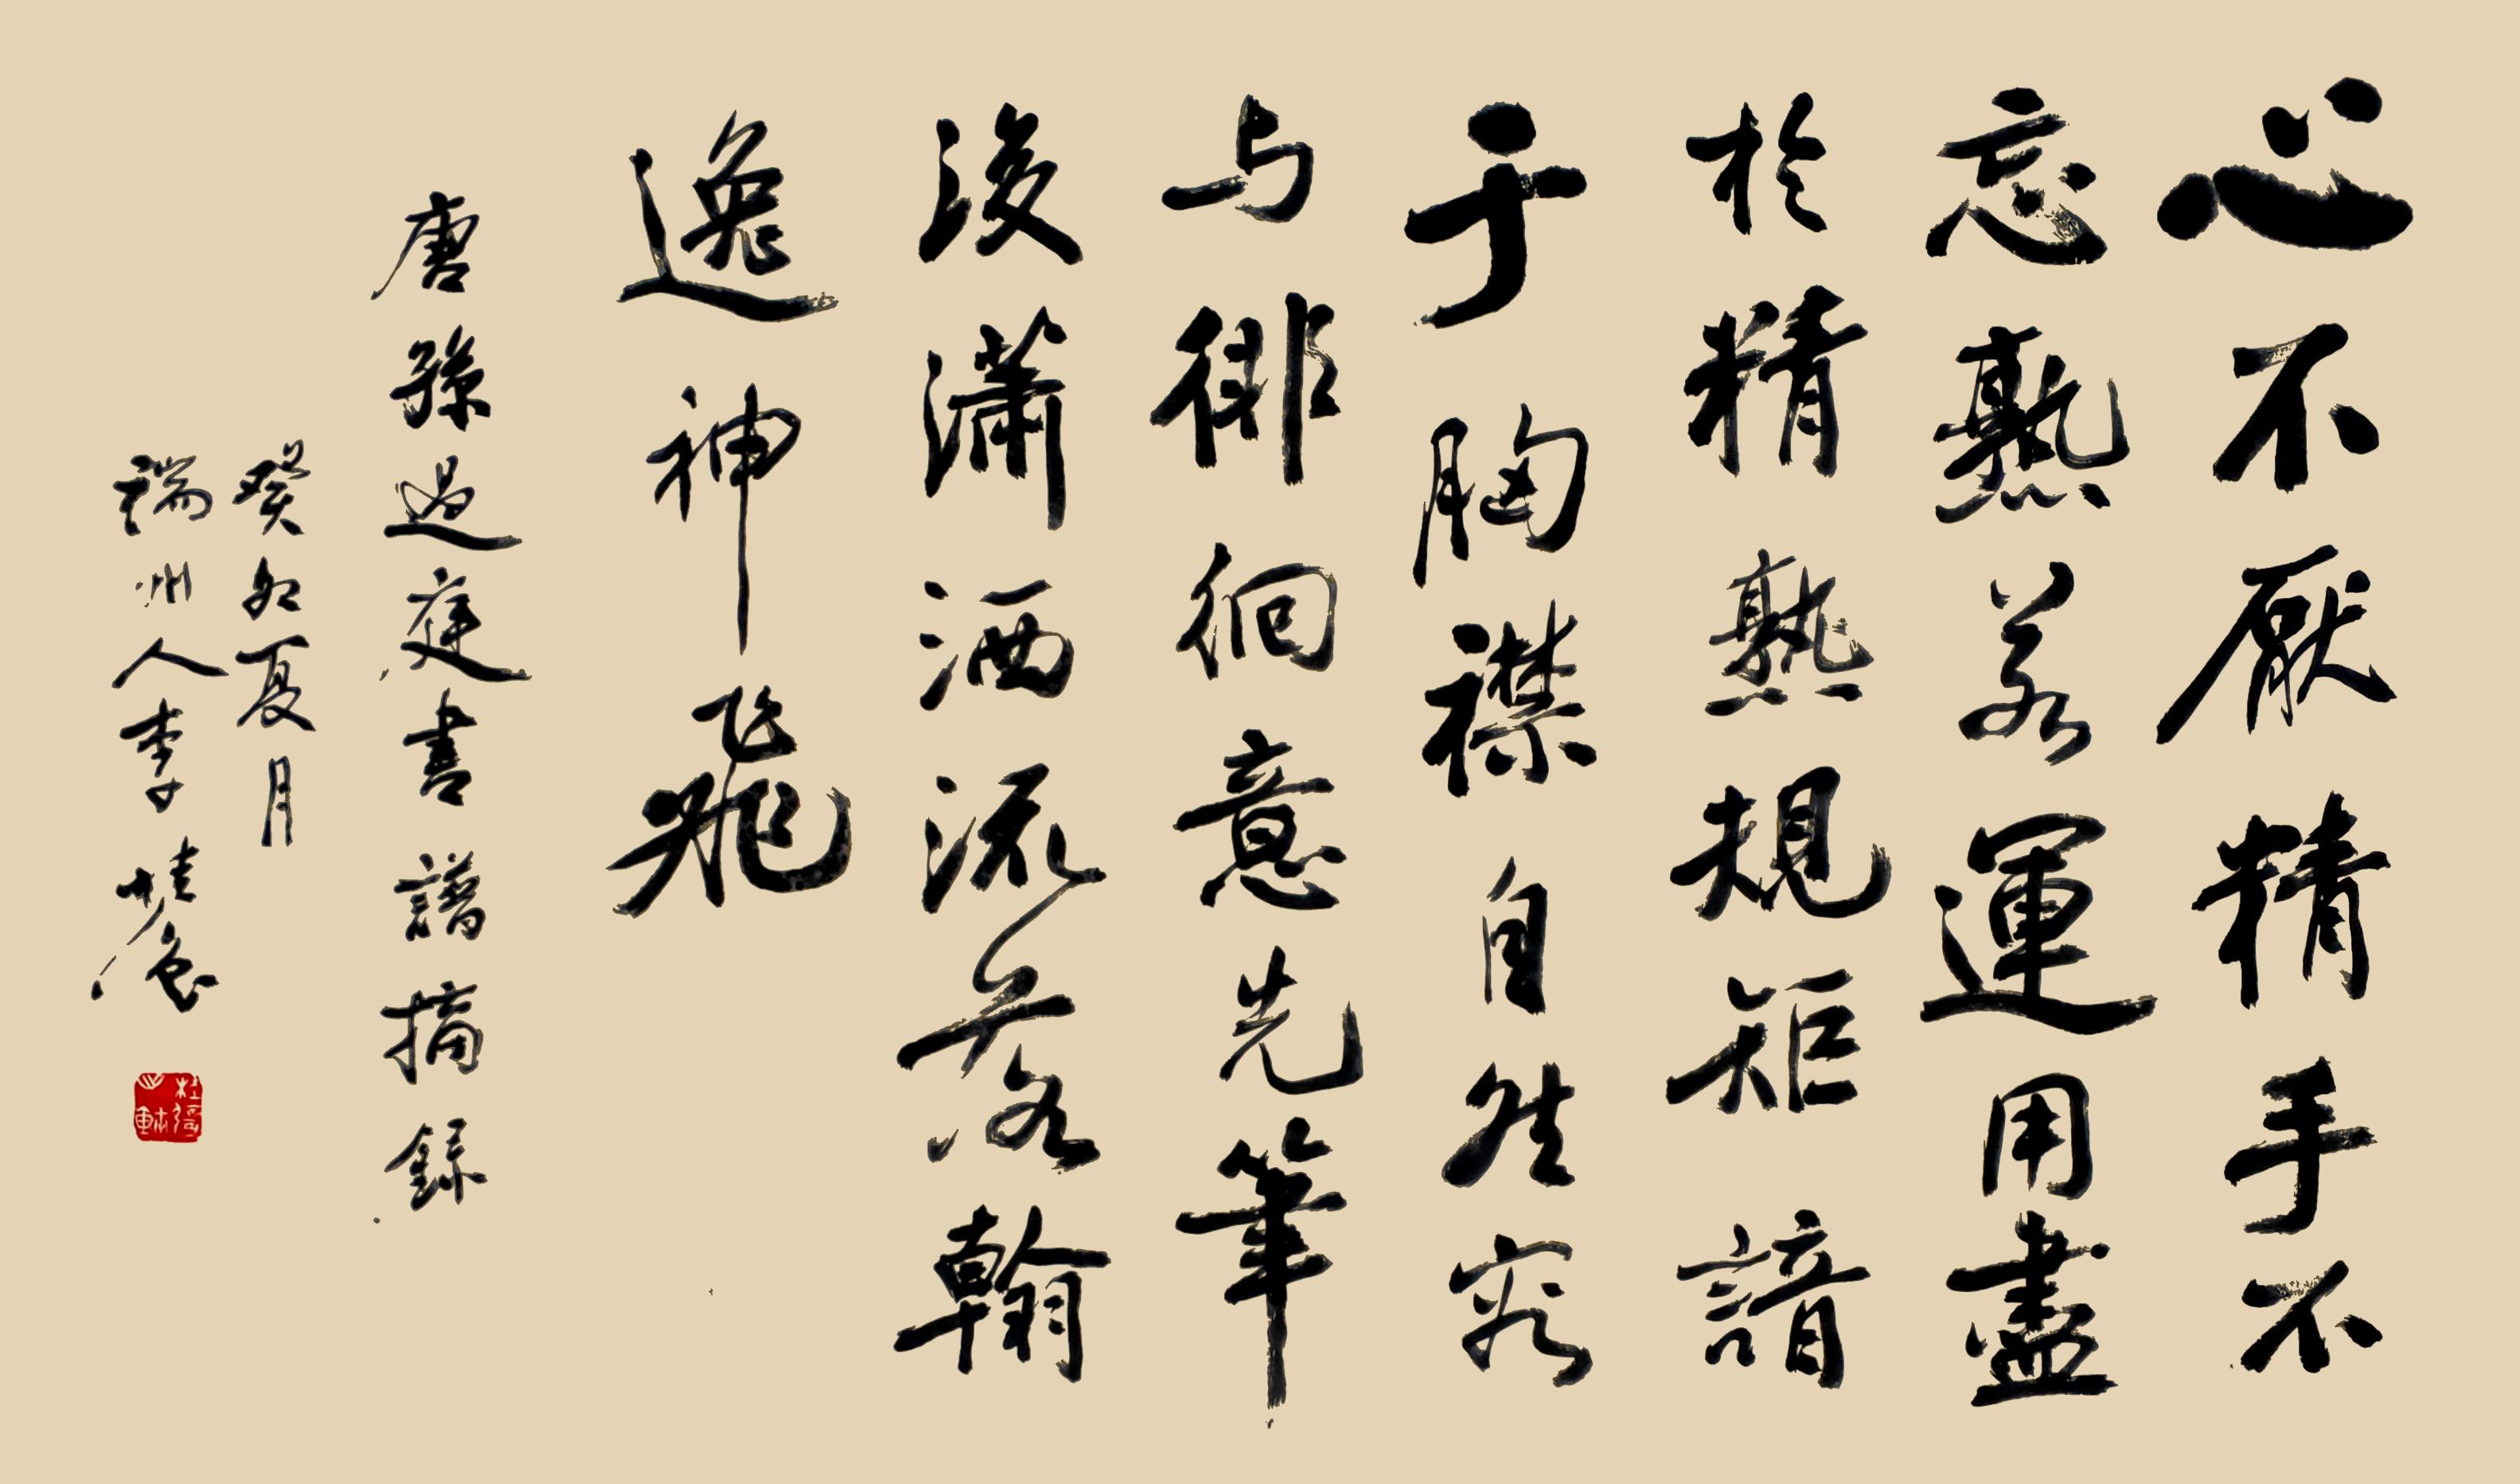 心不厭精手不
忘熟若運用盡
於精熟規矩諳
于胸襟自然容
与徘徊意先筆
後瀟洒流落翰
逸神飛
唐孫過庭書譜摘録
癸卯夏月
瑞州人李